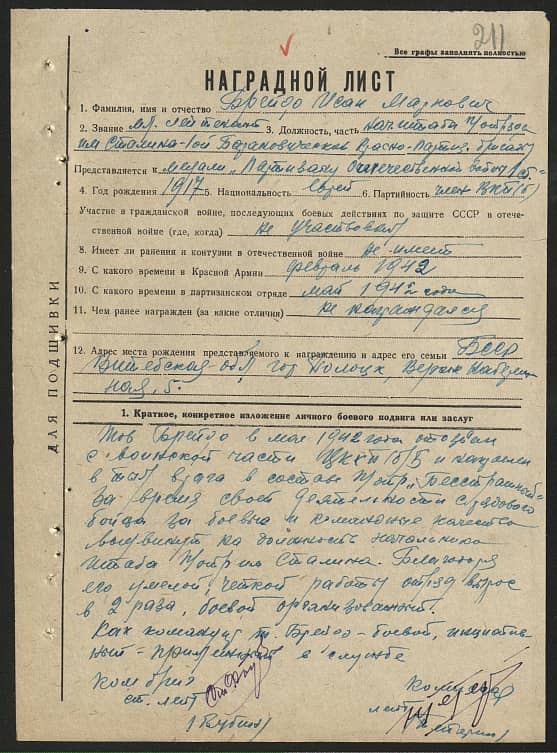 211
Все графы заполнять полностью
НАГРАДНОЙ ЛИСТ
1. Фамилия, имя и отчество Брейдо Исак Маркович
2. Звание мл. лейтенант 3. Должность, часть начштаба п/отряда
им Сталина 1ой Барановической Красно-Партиз. бригады
Представляется к медали „Партизану Отечественной войны" 1 ст.
4. Год рождения 1917 5. Национальность еврей 6. Партийность член ВКП(б)
Участие в гражданской войне, последующих боевых действиях по защите СССР в отече-
ственной войне (где, когда) не участвовал
8. Имеет ли ранения и контузии в отечественной войне не имеет
9. С какого времени в Красной Армии февраль 1942
10. С какого времени в партизанском отряде май 1942 года
11. Чем ранее награжден (за какие отличия) не награждался
12. Адрес места рождения представляемого к награждению и адрес его семьи БССР
Витебская обл гор Полоцк, Верхне Набереж
ная, 5.
ДЛЯ ПОДШИВКИ
1. Краткое, конкретное изложение личного боевого подвига или заслуг
Тов Брейдо в мае 1942 года отозван
с воинской части ЦККП(б)Б и направлен
в тыл врага в составе п/отр „Бесстрашный"
За время своей деятельности с рядового
бойца за боевые и командные качества
выдвинут на должность начальника
штаба п/отр им Сталина. Благодаря
его умелой, четкой работы отряд вырос
в 2 раза, боевой организованный.
Как командир т. Брейдо - боевой, инициатив
ный - в службе
Комбриг
ст. лейт
лейт